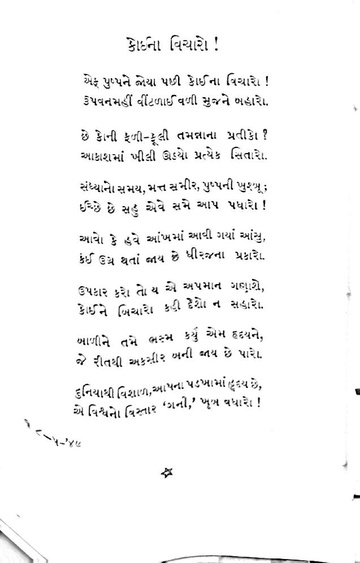 કોઈના વિચારો !
એક પુષ્પને જોયા પછી કોઈના વિચારો !
ઉપવનમહીં વીંટળાઈ વળી મુજને બહારો.
છે કોની ફળી-ફૂલી તમન્નાના પ્રતીકો ?
આકાશમાં ખીલી ઊઠ્યો પ્રત્યેક સિતારો.
સંધ્યાનો સમય, મત્ત સમીર, પુષ્પની ખુશ્બૂ;
ઈચ્છે છે સહુ એવે સમે આપ પધારો !
આવો કે હવે આંખમાં આવી ગયાં આંસુ,
કંઈ ઉગ્ર થતાં જાય છે ધીરજના પ્રકારો.
ઉપકાર કરો તો ય એ અપમાન ગણાશે,
કોઈને બિચારો કહી દેશો ન સહારો.
બાળીને તમે ભસ્મ કર્યું એમ હૃદયને,
જે રીતથી અકસીર બની જાય છે પારો.
દુનિયાથી વિશાળ, આપના પડખામાં હૃદય છે,
એ વિશ્વનો વિસ્તાર 'ગની,' ખૂબ વધારો !
-૫-'૪૯